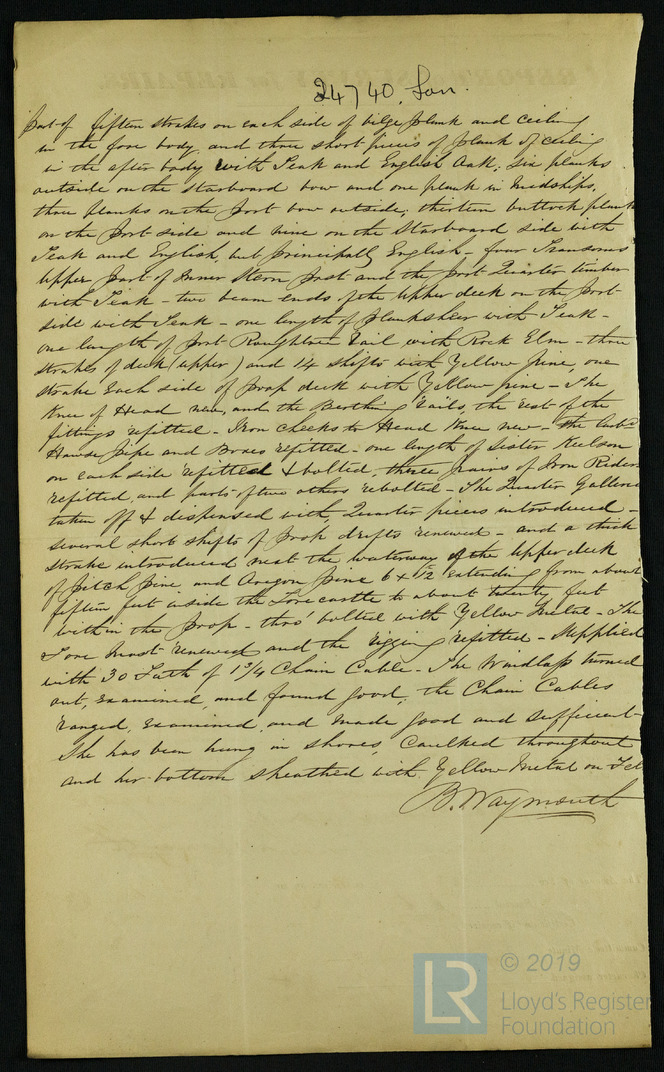 24740. Lon.
part of fifteen strakes on each side of bilge plank and ceiling
in the fore body, and three short pieces of plank of ceiling
in the after body with Teak and English Oak; Six planks
outside on the starboard bow and one plank in Midships,
three planks on the port bow outside; thirteen buttock planks
on the port side and nine on the Starboard side with
Teak and English, but principally English – four Transoms
Upper part of Inner Stern Post and the port Quarter timber
with Teak – two beam ends of the Upper deck on the port
side with Teak – one length of planksheer with Teak –
one length of port Roughtree Rail with Rock Elm – three
strakes of deck (upper) and 14 shifts with Yellow Pine, one
strake each side of poop deck with Yellow pine – The
Knee of Head new, and the Berthing Rails, the rest of the
fittings refitted – Iron Cheeks to Head Knee new – The
Hawse pipe and refitted – one length of Sister Keelson
on each side refitted & bolted, three pairs of Iron Riders
refitted, and parts of two others rebolted – The Quarter Galleries
taken off & dispensed with, Quarter pieces introduced –
several short shifts of poop drifts renewed – and a thick
strake introduced next the waterway of the Upper deck
of pitch pine and Oregon pine 6 x 1/2 extending from about
fifteen feet inside the Forecastle to about twenty feet
within the poop – thro' bolted with Yellow Metal – The
Fore mast renewed and the rigging refitted – Supplied
with 30 Fath of 1 3/4 Chain Cable – The Windlass turned
out, examined, and found good, the Chain Cables
ranged, examined, and made good and sufficient –
She has been hung in shores, Caulked throughout
and her bottom sheathed with Yellow Metal on Fel
B. Waymouth
LR
© 2019
Lloyd's Register
Foundation